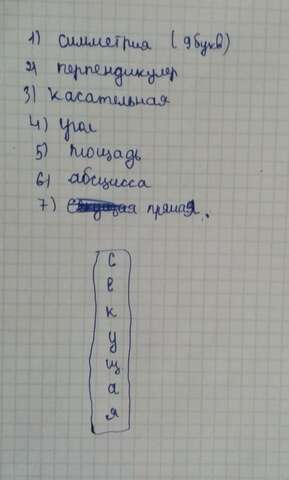 1) Симметрия (9 букв)
2) перпендикуляр
3) Касательная
4) Угол
5) Площадь
6) абсцисса
7) прямая.
С
е
к
у
щ
а
я